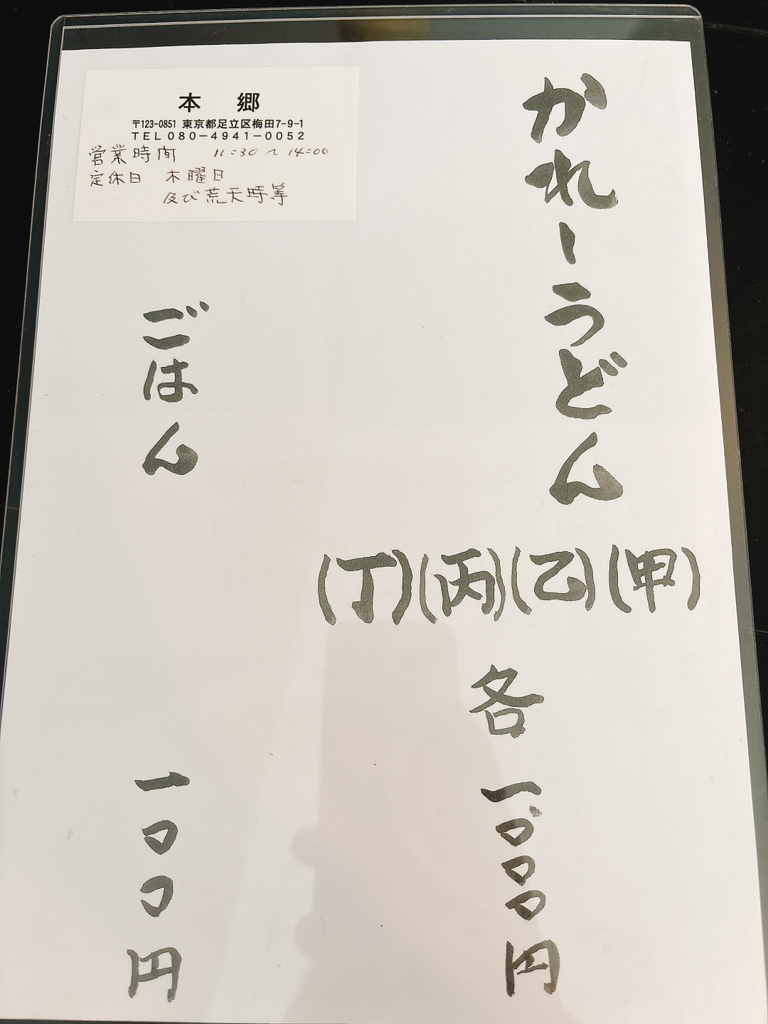 本 郷
〒123-0851 東京都足立区梅田7-9-1
TEL080-4941-0052
営業時間 11:30~14:00
定休日 木曜日
及び荒天時等
かれーうどん
(甲)
(乙)
(丙)
(丁)
各一、〇〇〇円
ごはん 一〇〇円